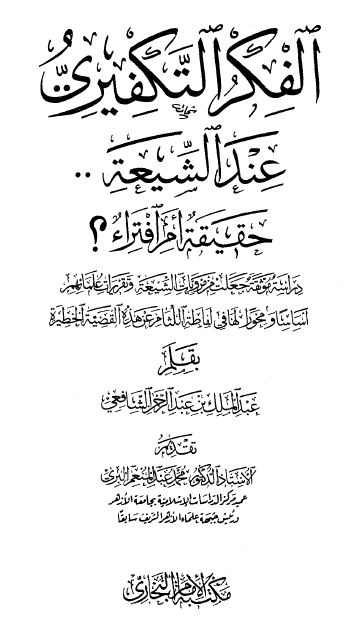 الفكر التكفيري
عند الشيعة ..
حقيقة أم افتراء؟
دراسة موثقة جعلت من مرويات الشيعة وتقريرات علمائهم
أساسا ومحورا لها في إماطة اللثام عن هذه القضية الخطيرة
بقلم
عبد الملك بن عبد الرحمن الشافعي
تقديم
الأستاذ الدكتور محمد عبد المنعم البري
عميد مركز الدراسات الإسلامية بجامعة الأزهر
ورئيس جبهة علماء الأزهر الشريف سابقا
مكتبة الإمام البخاري